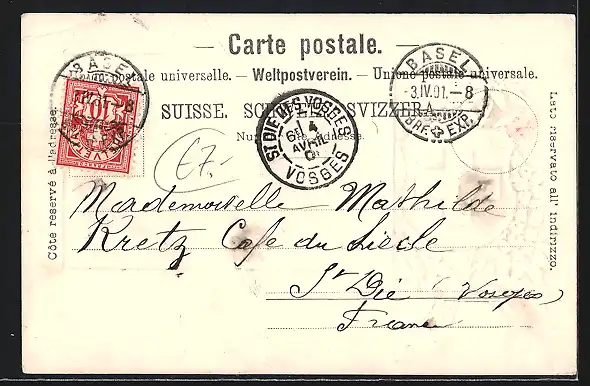 — Carte postale. —
Union postale universelle. — Weltpostverein. — Unione postale universale.
SUISSE. SCHWEIZ. SVIZZERA.
Nur für die Adresse.
Côte réservé à l'adresse.
Lato riservato all' indirizzo.
BASEL
8
10
HELVETIA
BASEL
3.IV.01.–8
BRF. EXP.
ST DIE DES VOSGES
6E 4
AVRIL
01
VOSGES
E7.-
Mademoiselle Mathilde
Kretz Cafe du Siècle
St Dié (Vosges)
France